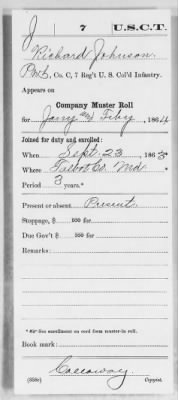 J 7 U.S.C.T.
Richard Johnson
Pvt., Co. C, 7 Reg't U. S. Col'd Infantry.
Appears on
Company Muster Roll
for Jany and Feby, 1864
Joined for duty and enrolled:
When Sept. 23, 1863
Where Talbot Co. Md.
Period 3 years.*
Present or absent Present
Stoppage, $ 100 for
Due Gov't $ 100 for
Remarks:
*See enrollment on card from muster-in roll.
Book mark:
Calloway
(358c) Copyist.